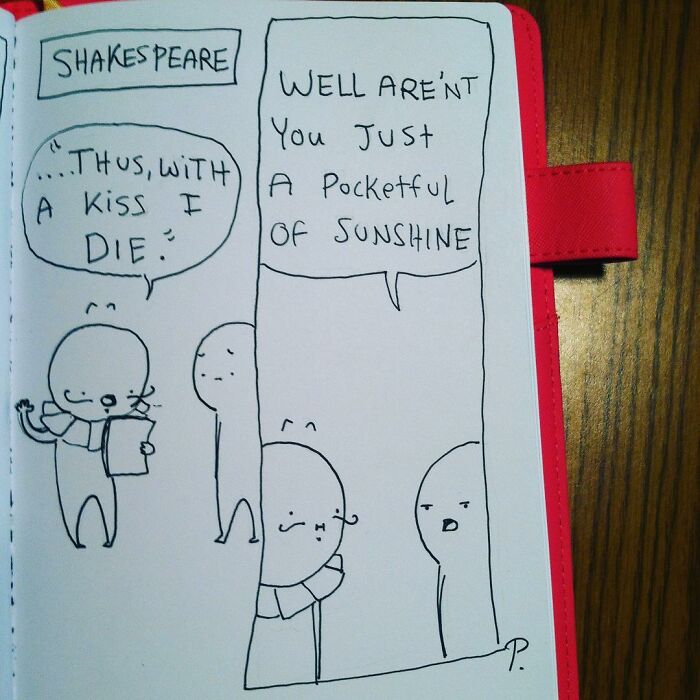 SHAKESPEARE
"....THUS, WITH
A KISS I
DIE."
WELL ARE'NT
YOU JUST
A POCKETFUL
OF SUNSHINE
P.